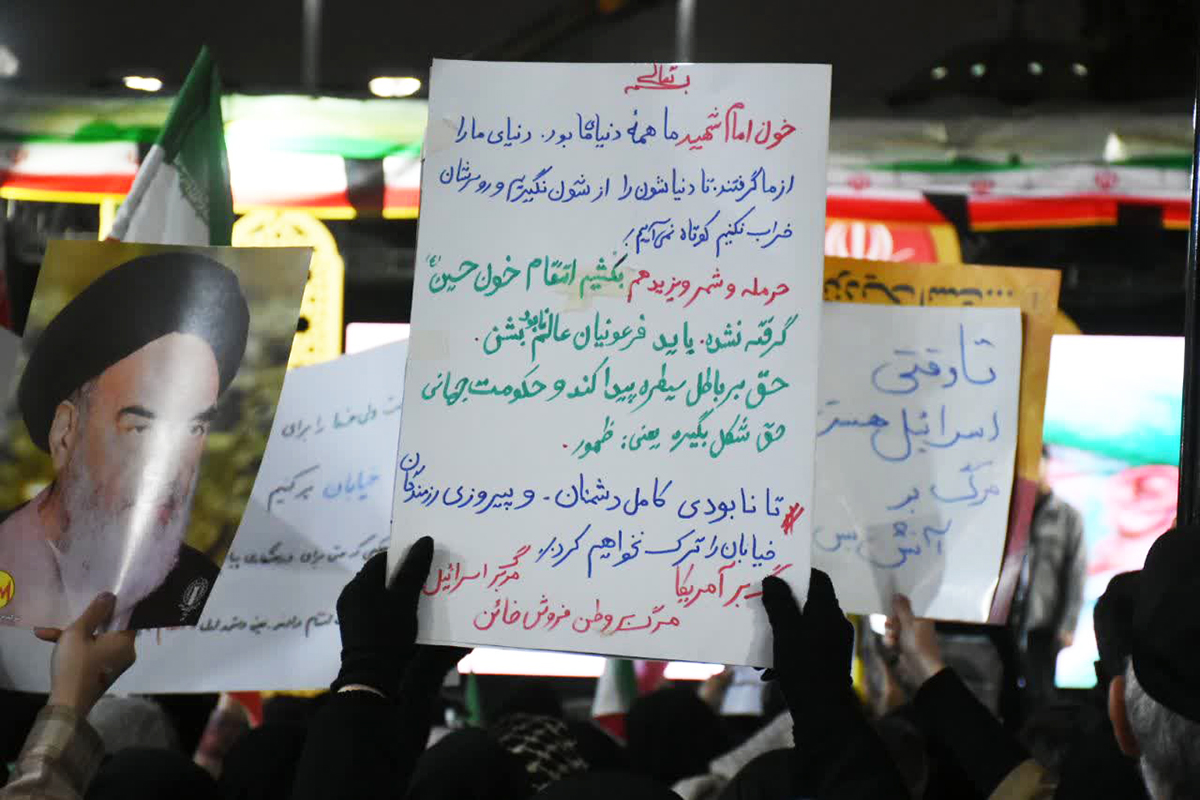 بسمه تعالی
خون امام شهید ما همهٔ دنیای ما بود. دنیای ما را
از ما گرفتند. تا دنیاشون را ازشون نگیریم و رو سرشان
خراب نکنیم کوتاه نمی‌آییم!
حرمله و شمر و یزید هم بکشیم انتقام خون حسین (ع)
گرفته نشده. باید فرعونیان عالم نابود بشن.
حق بر باطل سیطره پیدا کند و حکومت جهانی
حق شکل بگیره یعنی: ظهور.
# تا نابودی کامل دشمنان - و پیروزی رزمندگان
خیابان را ترک نخواهیم کرد!
بر آمریکا مرگ بر اسرائیل
مرگ بر وطن فروش خائن
تا وقتی
اسرائیل هست
مرگ بر
آتش بس
ولی خدا را برای
خیابان بر کنیم